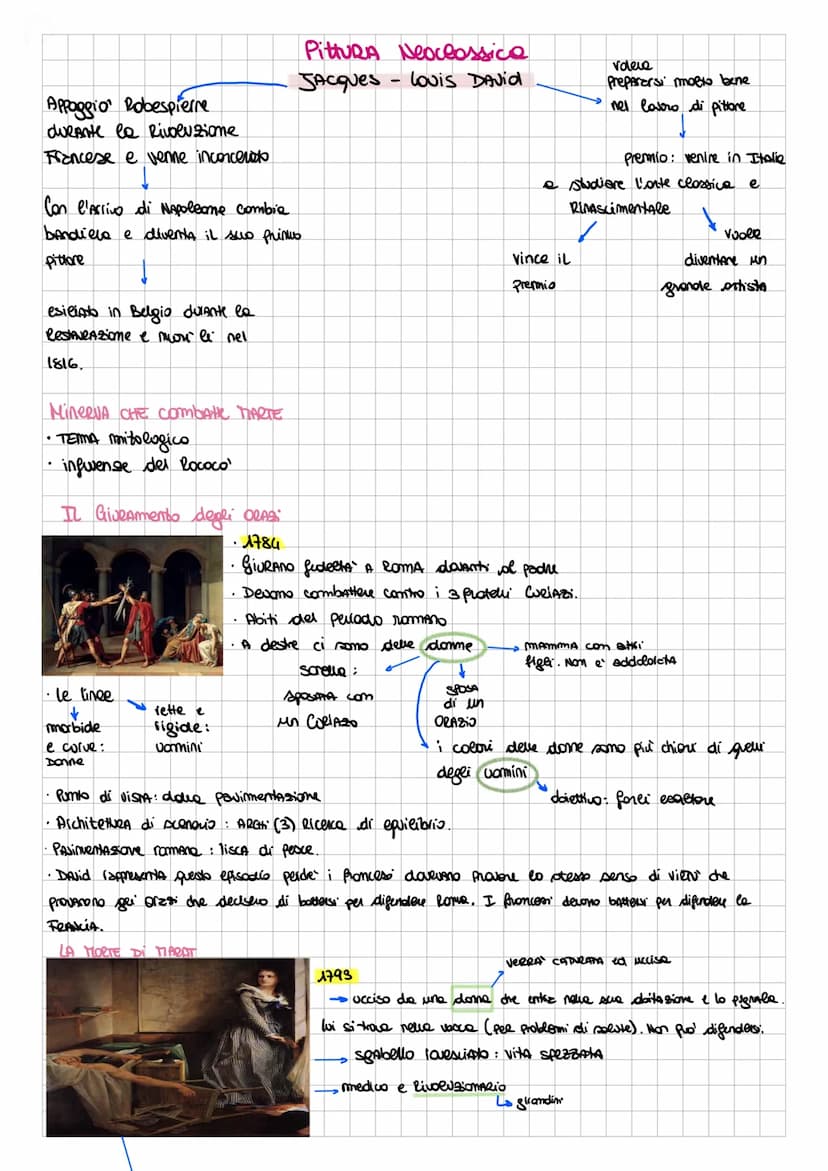 Pittura Neoclassica
Jacques - Louis David
Appoggiò Robespierre
durante la Rivoluzione
Francese e venne incarcerato
Con l'arrivo di Napoleone cambia
bandiera e diventa il suo primo
pittore
esiliato in Belgio durante la
Restaurazione e morì lì nel
1816.
voleva
prepararsi molto bene
nel lavoro di pittore
premio: venire in Italia
a studiare l'arte classica e
Rinascimentale
vince il
premio
vuole
diventare un
grande artista
Minerva che combatte Marte
• TEMA mitologico
• influenze del Rococò
Il Giuramento degli Orazi
• 1784
• Giurano fedeltà a Roma davanti al padre
• Devono combattere contro i 3 fratelli Curiazi.
• Abiti del periodo romano
• A destra ci sono delle donne
mamma con altri
figli. Non è addolorata
sorella:
sposata con
un Curiazo
sposa
di un
Orazio
i colori delle donne sono più chiari di quelli
degli uomini
obiettivo: farli esaltare
• le linee
morbide
e curve:
Donne
rette e
rigide:
uomini
• Punto di vista: dalla pavimentazione
• Architettura di scenario: Archi (3) Ricerca di equilibrio.
• Pavimentazione romana: lisca di pesce.
• David rappresenta questo episodio perché i francesi dovevano provare lo stesso senso di virtù che
provarono gli Orazi che decisero di battersi per difendere Roma. I francesi devono battersi per difendere la
Francia.
La morte di Marat
1793
verrà catturata ed uccisa
ucciso da una donna che entra nella sua abitazione e lo pugnala.
lui si trova nella vasca (per problemi di salute). Non può difendersi.
sgabello rovesciato: vita spezzata
medico e rivoluzionario